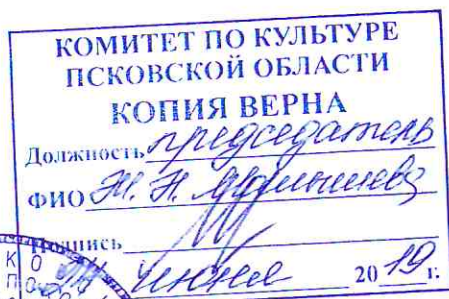 КОМИТЕТ ПО КУЛЬТУРЕ
ПСКОВСКОЙ ОБЛАСТИ
КОПИЯ ВЕРНА
Должность председатель
ФИО Ж. Н. Малышева
Подпись
24 июня 2019 г.